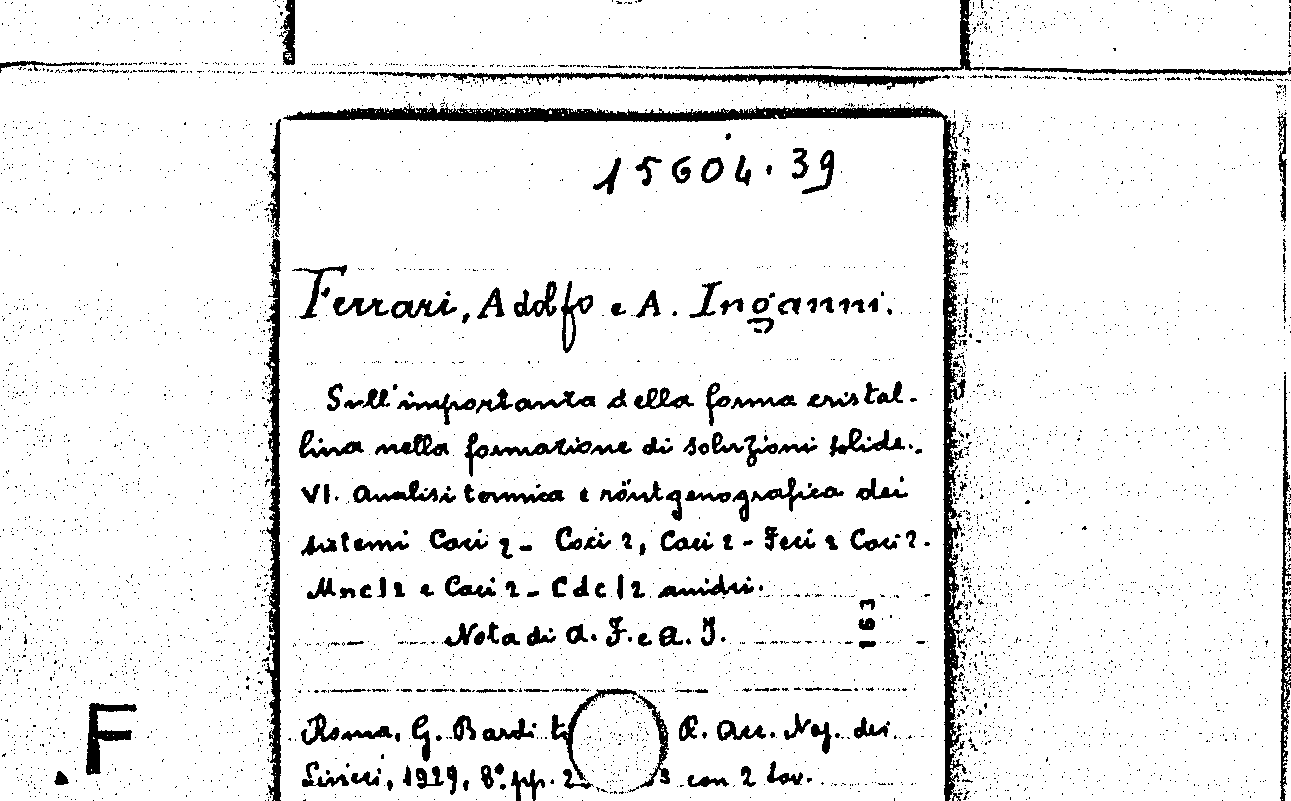 15604.39
Ferrari, Adolfo e A. Inganni.
Sull'importanza della forma cristal-
lina nella formazione di soluzioni solide.
VI. Analisi termica e röntgenografica dei
sistemi Cacl2 - Cocl2, Cacl2 - Fecl2 Cacl2-
Mncl2 e Cacl2 - Cdcl2 anidri.
Nota di A. F. e A. I.
163
Roma, G. Bardi R. Acc. Naz. dei
Lincei, 1929, 8° pp. con 2 tav.
F